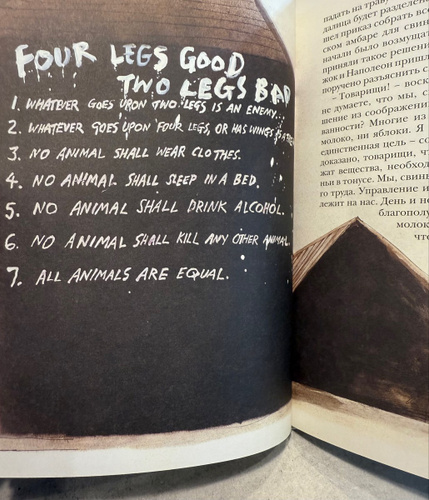 FOUR LEGS GOOD
TWO LEGS BAD
1. WHATEVER GOES UPON TWO LEGS IS AN ENEMY.
2. WHATEVER GOES UPON FOUR LEGS, OR HAS WINGS,
3. NO ANIMAL SHALL WEAR CLOTHES.
4. NO ANIMAL SHALL SLEEP IN A BED.
5. NO ANIMAL SHALL DRINK ALCOHOL.
6. NO ANIMAL SHALL KILL ANY OTHER ANIMAL.
7. ALL ANIMALS ARE EQUAL.
падать на траву
далища будет разделен
шел приказ собрать все
ском амбаре для свин
начали было возмуща
приняли такое решени
жок и Наполеон приш
поручено разъяснить с
– Товарищи! – воск
не думаете, что мы, с
шение из соображени
ванности? Многие из
молоко, ни яблоки. Я
единственная цель – со
доказано, товарищи, ч
жат вещества, необход
ньи в тонусе. Мы, свин
го труда. Управление и
лежит на нас. День и не
благополу
молок
что